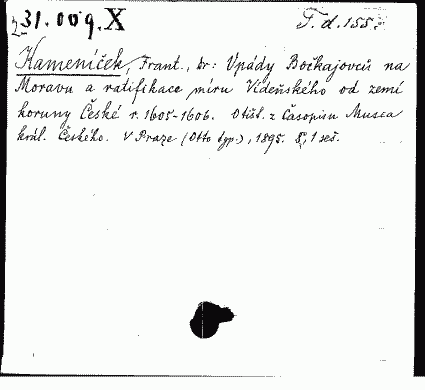 31.009. X T. d. 155.
Kameníček, Frant., Dr: Vpády Bočkajovců na
Moravu a ratifikace míru Vídeňského od zemí
koruny České r. 1605-1606. Otišt. z Časopisu Musea
král. Českého. V Praze (Otto typ.), 1895. 8, 1 seš.